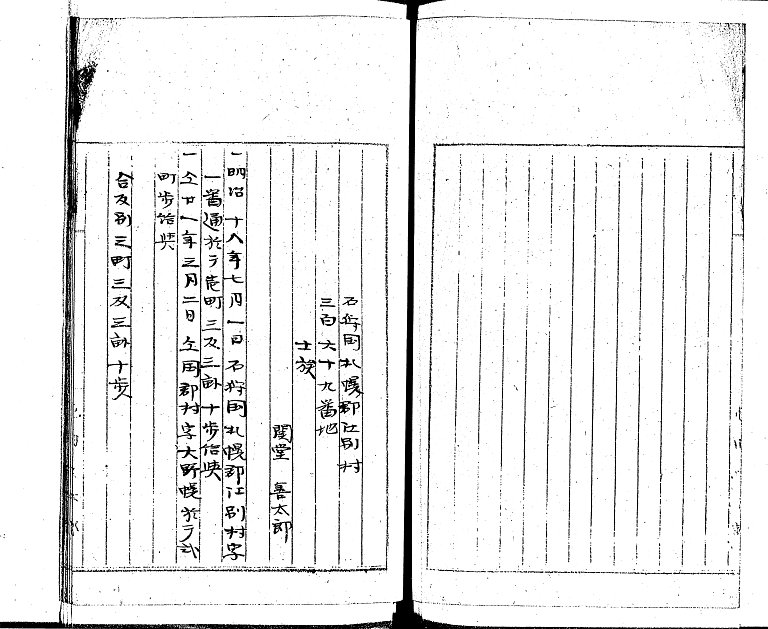 石狩国札幌郡江別村
三百六十九番地
士族
関堂 善太郎
一明治十八年七月一日石狩国札幌郡江別村字
一番通於テ壱町三反三畝十歩給與
一仝廿一年三月二日仝国郡村字大野幌於テ弐
町歩給與
合反別三町三反三畝十歩